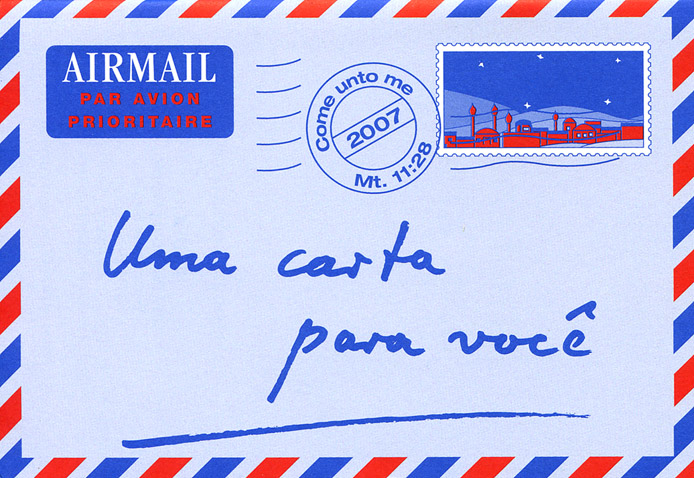 AIRMAIL
PAR AVION
PRIORITAIRE
Come unto me
2007
Mt. 11:28
Uma carta
para você